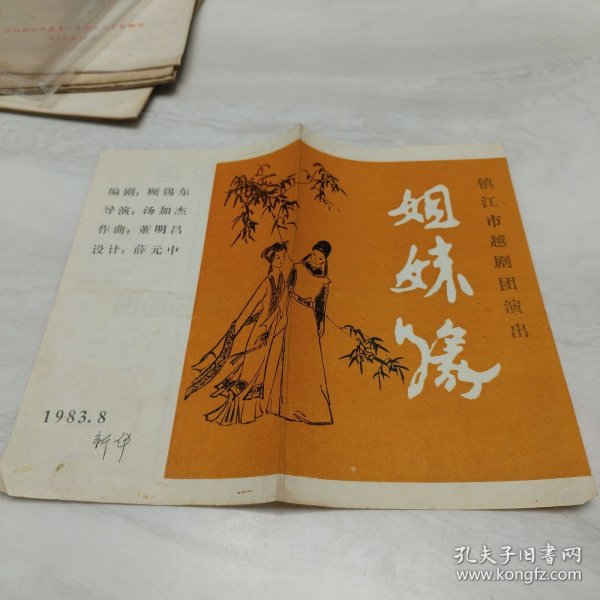 编剧：顾锡东
导演：汤加杰
作曲：董明昌
设计：薛元中
1983.8
新华
姐妹缘
镇江市越剧团演出
孔夫子旧书网
www.kongfz.com